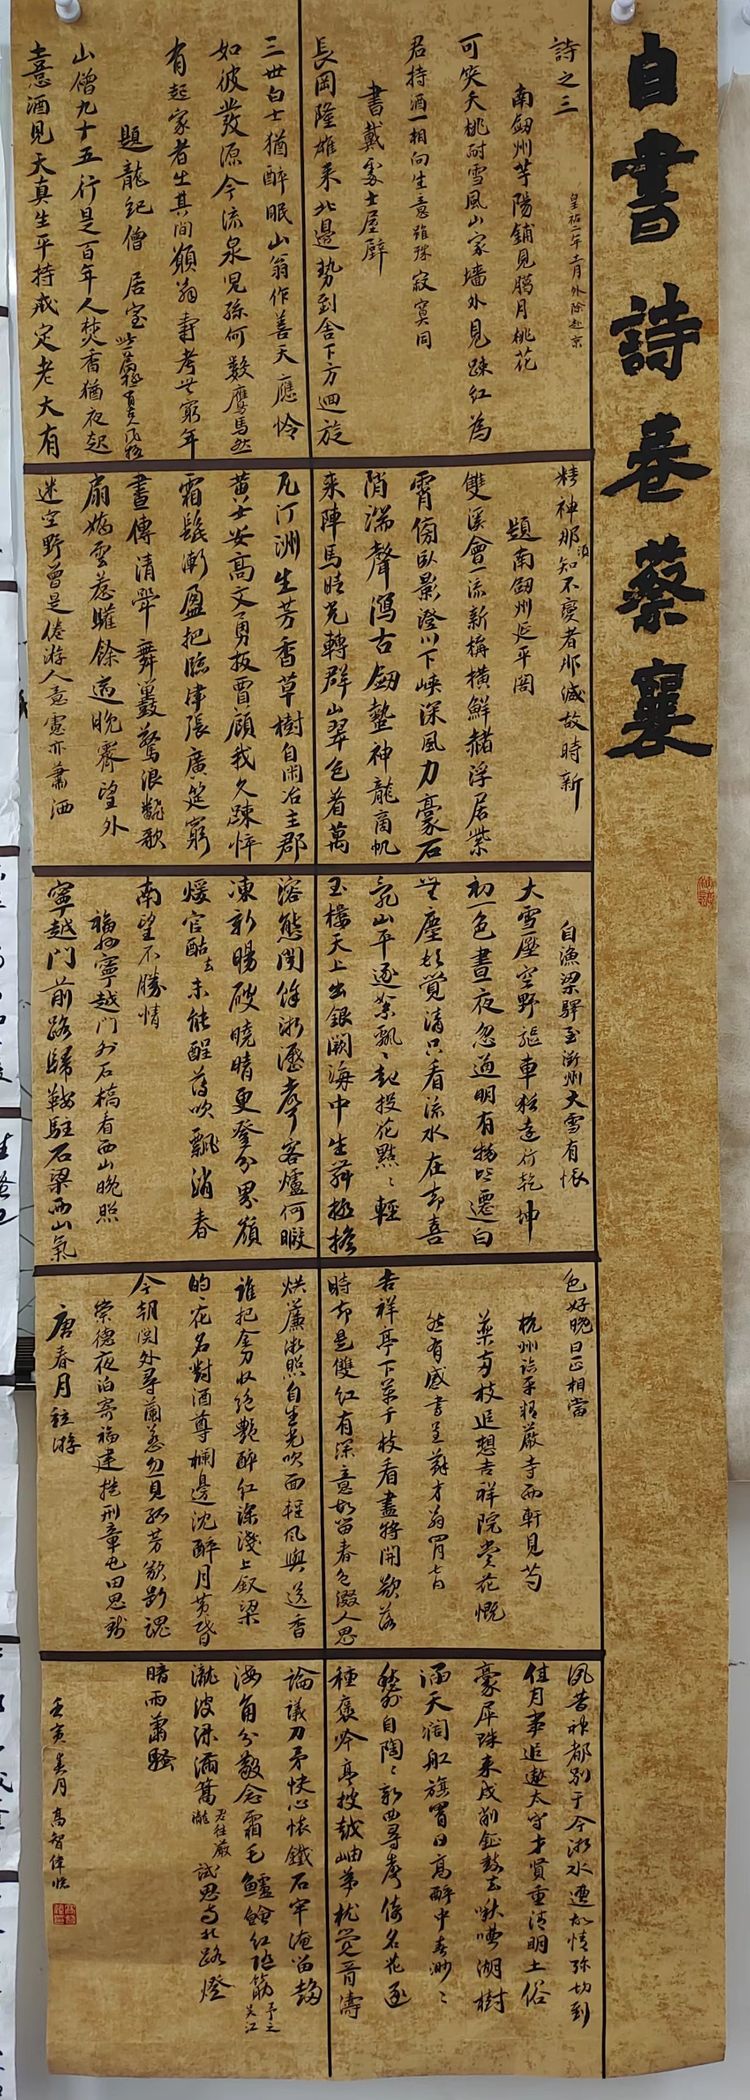 自書詩卷蔡襄
詩之三
皇祐二年十一月外除赴京
南劔州芋陽鋪見臘月桃花
可笑夭桃耐雪風山家墻外見踈紅為
君持酒一相向生意雖殊寂寞同
書戴處士屋壁
長岡隆雄来北邊勢到舍下方迴旋
三世白士猶醉眠山翁作善天應怜
如彼發源今流泉兒孫何數鷹馬然
有起家者出其間願翁壽考世窮年
題龍紀僧居室
山僧九十五行是百年人焚香猶夜起
憙酒見天真生平持戒定老大有
精神那知不變者那減故時新
須
題南劔州延平閣
雙溪會一流新構橫鮮赭浮居紫
霄傍臥影澄川下峽深風力豪石
陗湍聲瀉古劔蟄神龍商帆
来陣馬晴光轉群山翠色着萬
瓦汀洲生芳香草樹自閑冶主郡
黄士安高文勇扳賈顧我久踈怦
霜髭漸盈把臨津張廣筵窮
晝傳清斝舞鼛驚浪飜歌
扇嬌雲惹驩餘適晚霽望外
迷空野曾是倦游人意慮亦蕭洒
自漁梁驛至衢州大雪有懷
大雪壓空野驅車猶遠行乾坤
初一色晝夜忽通明有物皆遷白
無塵頓覺清只看流水在却喜
亂山平逐絮飄飄起投花點點輕
玉樓天上出銀闕海中生舜極擔
溶態閑餘浙瀝聲客爐何暇
凍新暘破曉晴更登分界嶺
煖官酤未能醒薄吹飄消春
去
南望不勝情
福州寧越門外石橋看西山晚照
寧越門前路歸鞍駐石梁西山氣
色好晚日正相當
杭州臨平精嚴寺西軒見芍
藥兩枝追想吉祥院賞花慨
然有感書呈蘇才翁四月七日
吉祥亭下萬千枝看盡將開欲落
時却是雙紅有深意故留春色綴人思
烘簾淑照自生光吹面輕風與送香
誰把金刀收絕艷醉紅深淺上釵梁
的的花名對酒尊欄邊沈醉月黄昏
今朝関外尋蘭若忽見孤芳欲斷魂
崇德夜泊寄福建提刑章屯田思錢
唐春月并游
夙昔神都别于今浙水遭故情弥切到
佳月事追遨太守才賢重清明土俗
豪犀珠来戍削鉦鼓去啾嘈湖樹
涵天濶舡旗冒日高醉中春渺渺
愁外自陶陶新曲尋聲倚名花逐
種褒吟亭披越岫夢枕覺胥濤
論議刀矛快心懷鐵石牢淹留趨
海角分散念霜毛鱸鱠紅隨筯
予之吴江
瀧波淥滿篙試思南北路燈
君往嚴瀧
暗雨蕭騷
壬寅 月高智偉臨